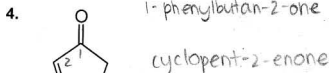 4.
1-phenylbutan-2-one
O
cyclopent-2-enone
2 1